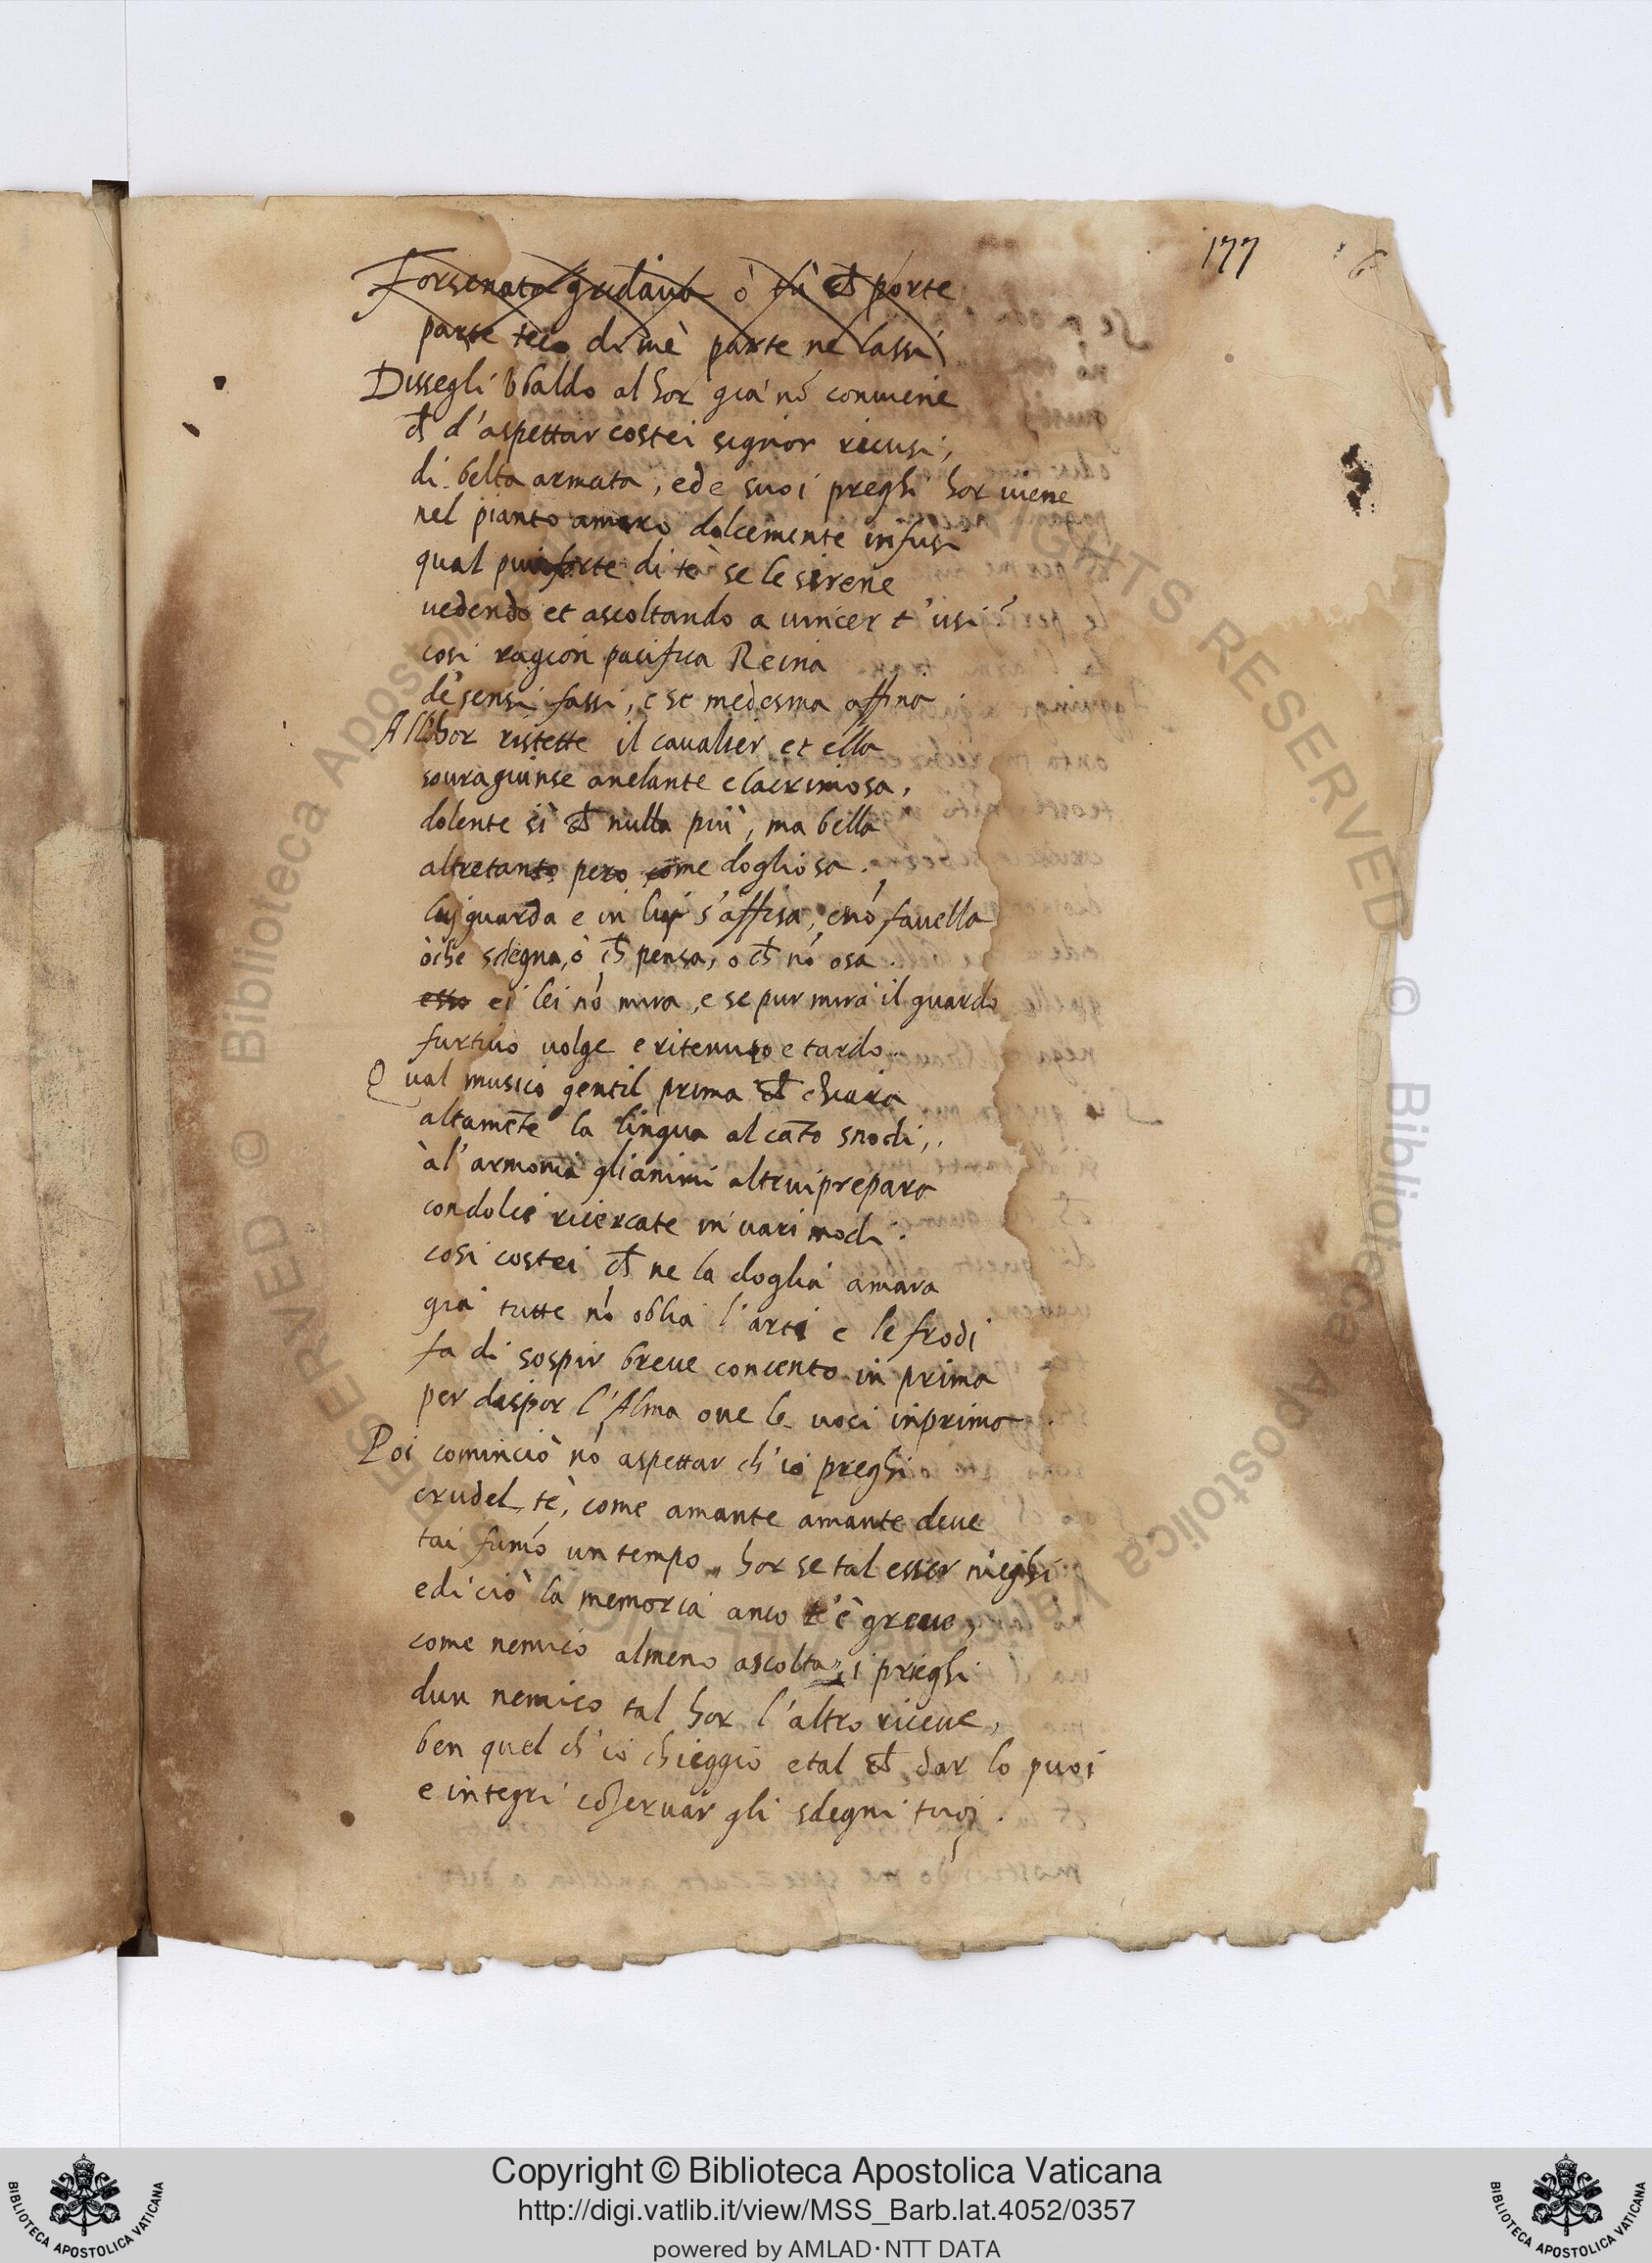 177
Forsenata gridaua ò tù ch̃ porte
parte teco di mè parte ne lassi
Dissegli Vbaldo al hor già nõ conuiene
ch̃ d'aspettar costei signior ricusi;
di belta armata, e de suoi preghi hor uiene
nel pianto amaro dolcemente infusi
qual piu forte di tè se le sirene
uedendo et ascoltando a uincer t'usi?
cosi ragion pacifica Reina
de' sensi fassi, e se medesma affina.
Allhor ristette il caualier et ella
souragiunse anelante e lacrimosa,
dolente si ch̃ nulla più, ma bella
altretanto pero come dogliosa.
lui guarda e in lui s'affisa, e nõ fauella
ò che sdegna, ò ch̃ pensa, o ch̃ nõ osa.
esso ei lei nõ mira, e se pur mira il guardo
furtiuo uolge e ritenuto e tardo.
Qual musico gentil prima ch̃ chiara
altamẽte la lingua al cãto snodi,
à l'armonia gli animi altrui prepara
con dolci ricercate in uari modi.
cosi costei ch̃ ne la doglia amara
già tutte nõ oblia l'arti e le frodi
fa di sospir breue concento in prima
per dispor l'Alma oue le uoci inprima.
Poi cominciò nõ aspettar ch'io preghi
crudel tè, come amante amante deue
tai fumõ un tempo, hor se tal esser nieghi
e di ciò la memoria anco t'è greue,
come nemico almeno ascolta, i prieghi
d'un nemico tal hor l'altro riceue,
ben quel ch'io chieggio e tal ch̃ dar lo puoi
e integri cõseruar gli sdegni tuoi.
© Biblioteca Apostolica Vaticana ALL RIGHTS RESERVED © Biblioteca Apostolica Vaticana ALL RIGHTS RESERVED
Copyright © Biblioteca Apostolica Vaticana
http://digi.vatlib.it/view/MSS_Barb.lat.4052/0357
powered by AMLAD·NTT DATA
BIBLIOTECA APOSTOLICA VATICANA
BIBLIOTECA APOSTOLICA VATICANA